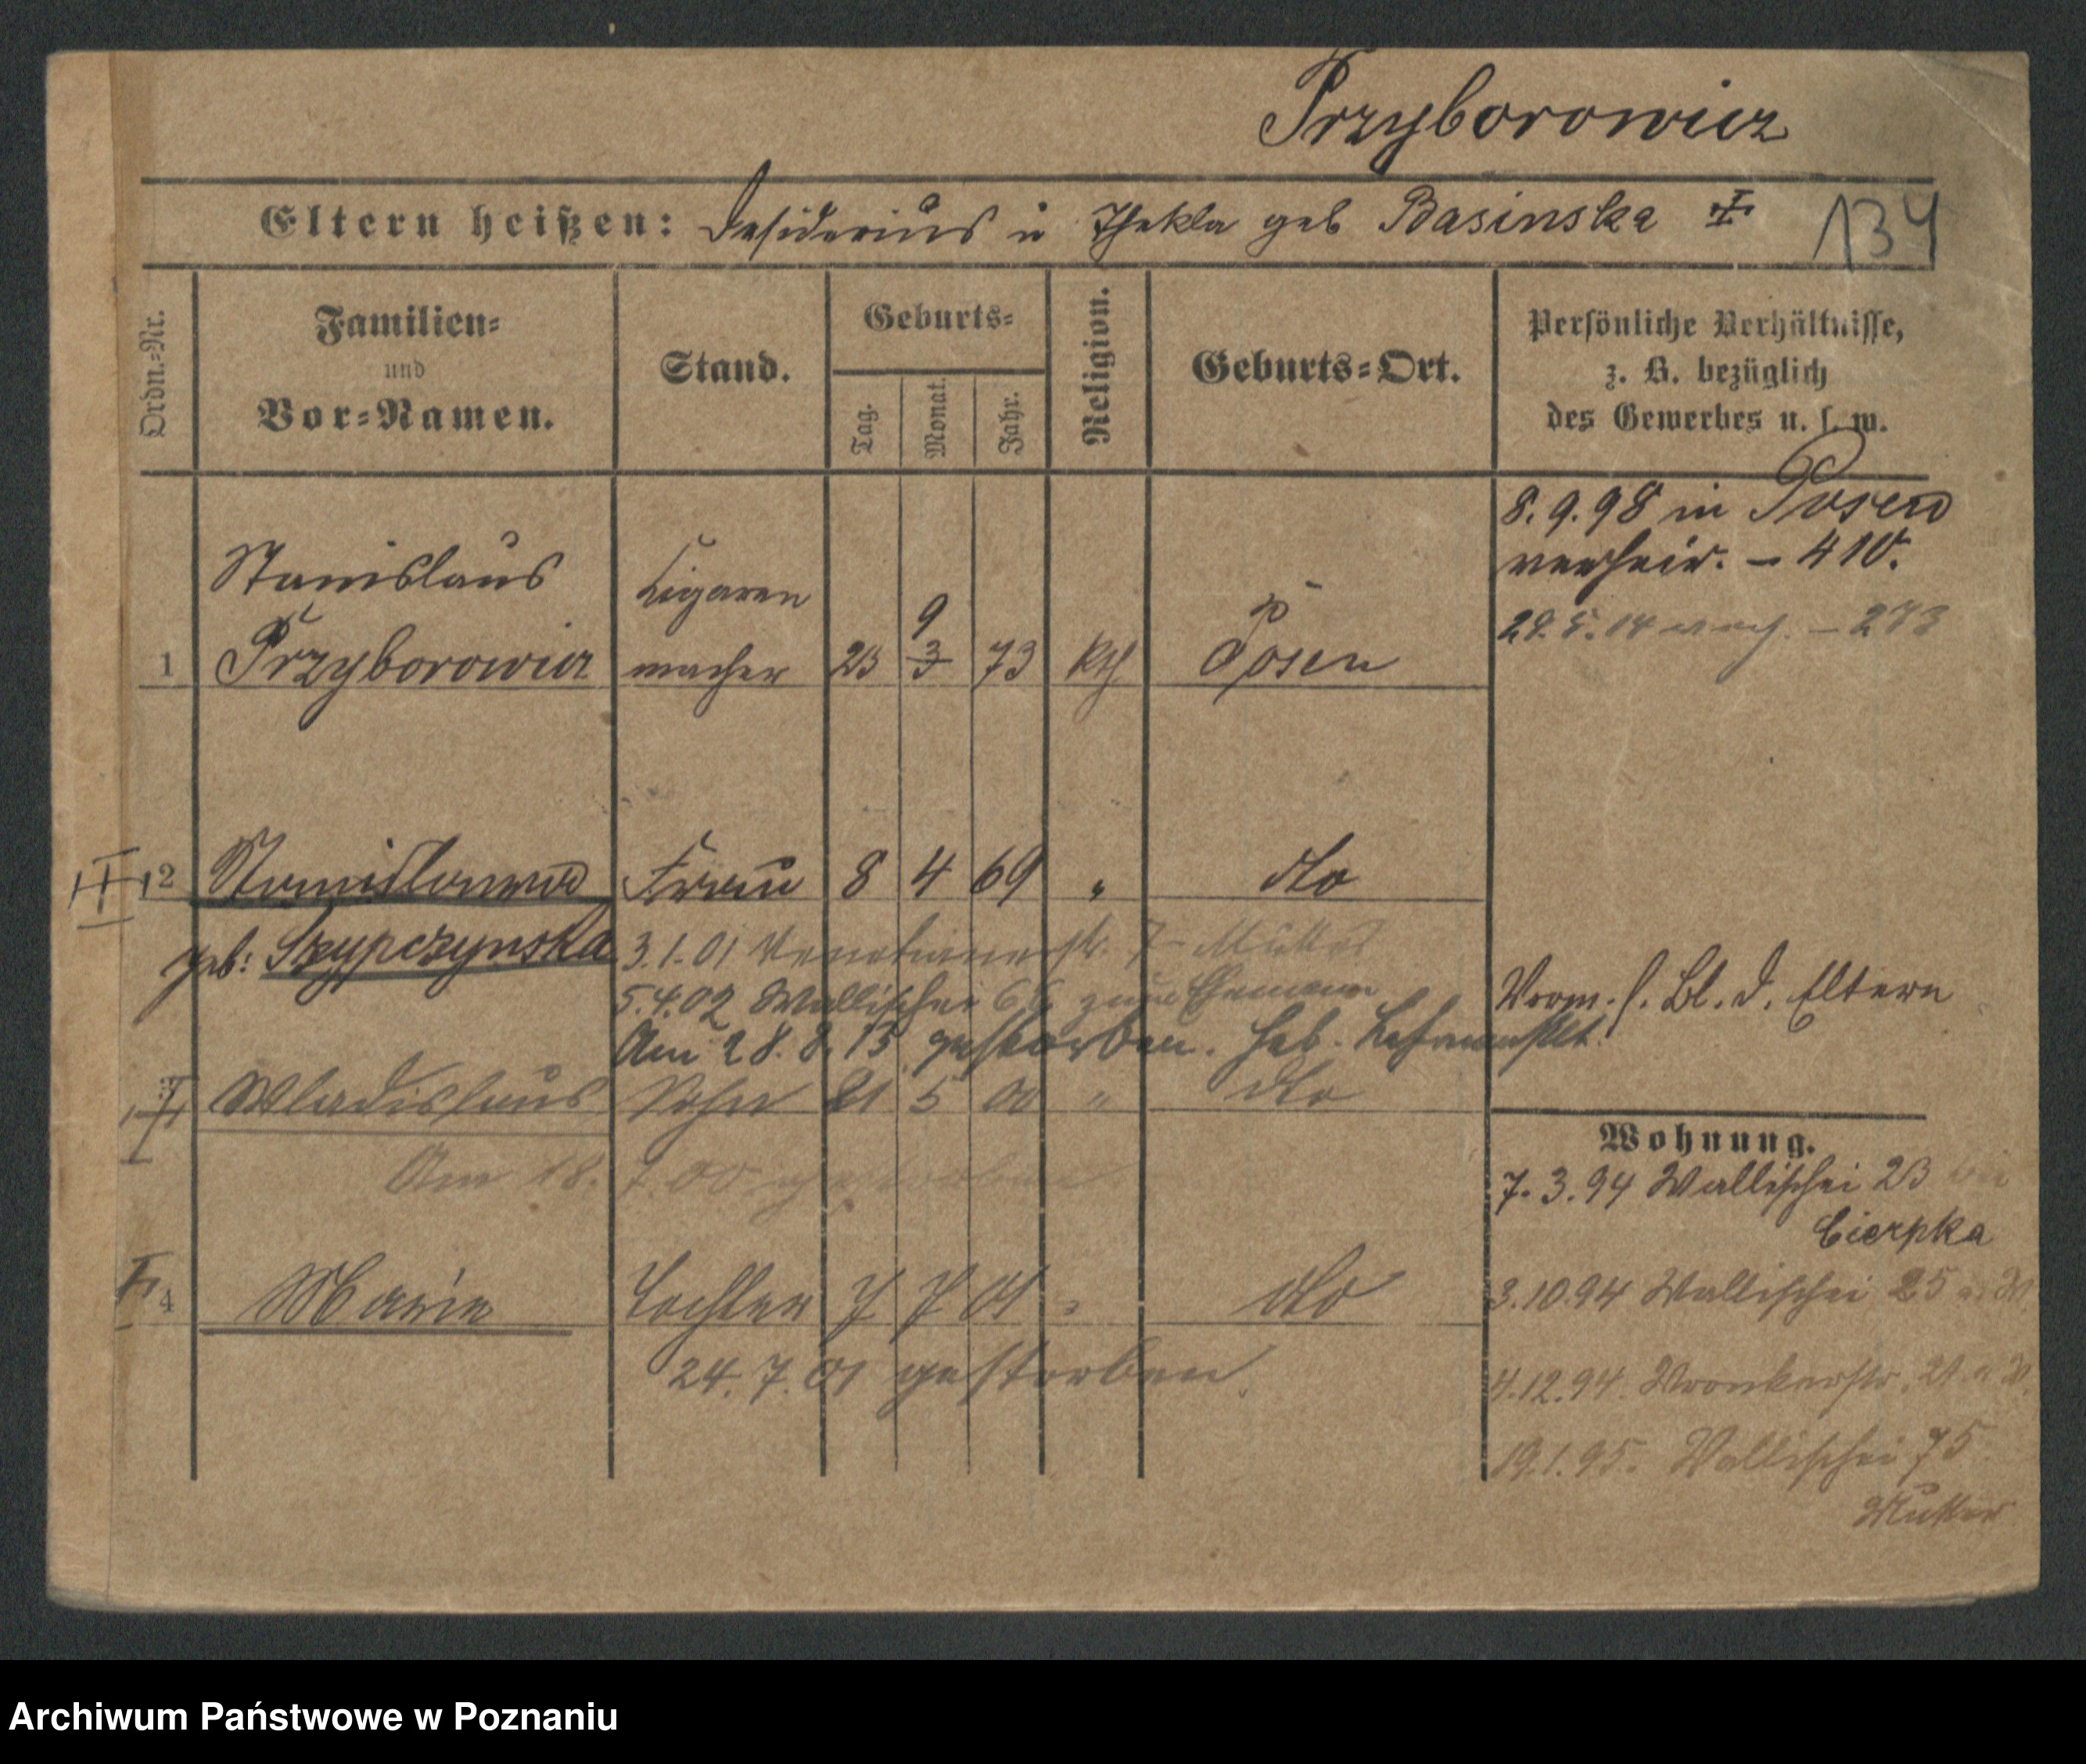 Przyborowicz
Eltern heißen: Desiderius u Thekla geb Basinska
134
Ordn.-Nr.
Familien-
und
Vor-Namen.
Stand.
Geburts-
Tag.
Monat.
Jahr.
Religion.
Geburts-Ort.
Persönliche Verhältnisse,
z. B. bezüglich
des Gewerbes u. s. w.
8. 9. 98 in Posen
verheir. – 410.
Stanislaus
Cigaren
9
1 Przyborowicz macher 23 3 73 kth Posen
2 Stanislawa Frau 8 4 69 " dto
geb: Szypczynska
3.1.01 7 Mutter
5.4.02 Wallischei 66 zum Ehemann
Am 28. 8. 13 gestorben. Heb.
Vrom. s. Bl. d. Eltern
Wladislaus Sohn 21 5 00 " dto
Am 18. 7. 00 gestorben
4 Marie Tochter 7 7 01 " dto
24. 7. 01 gestorben.
Wohnung.
7. 3. 94 Wallischei 23 bei
Cierpka
3.10.94 Wallischei 25
4.12.94. Wronkerstr. 21
19.1.95. Wallischei 75
Mutter
Archiwum Państwowe w Poznaniu